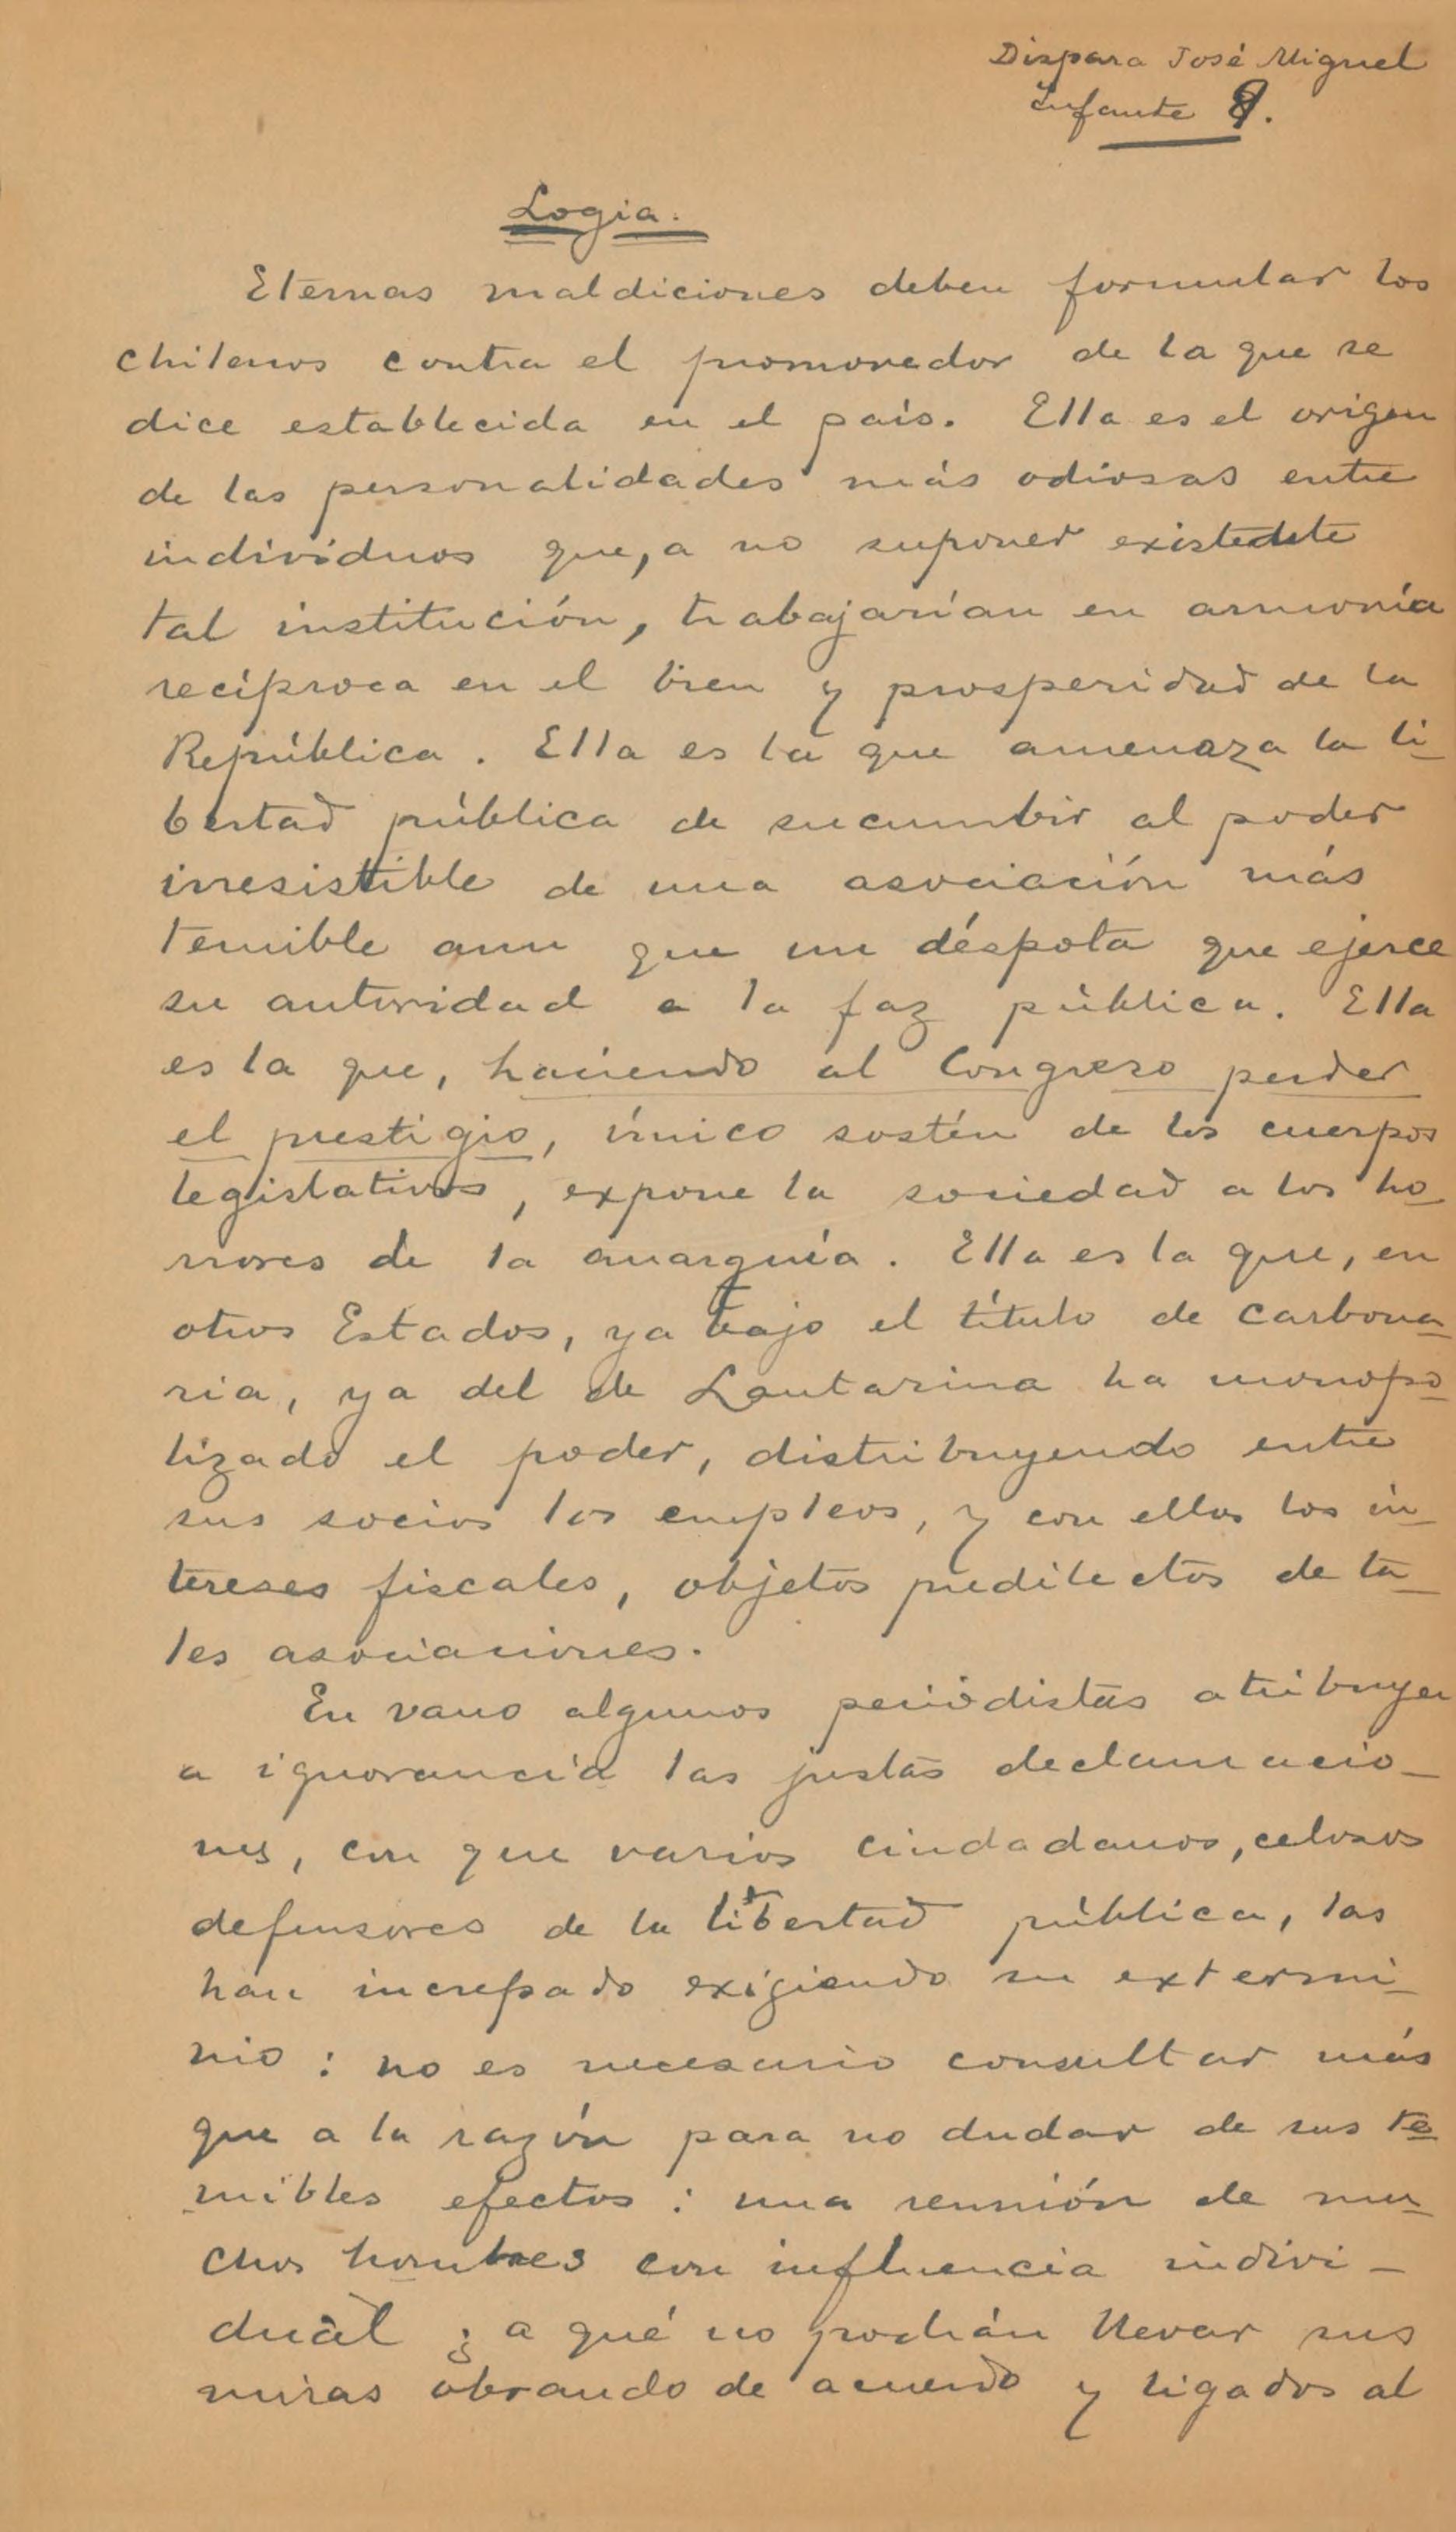 Dispara José Miguel
Infante 8.
Logia.
Eternas maldiciones deben formular los
chilenos contra el promovedor de la que se
dice establecida en el país. Ella es el origen
de las personalidades más odiosas entre
individuos que, a no suponer existente
tal institución, trabajarían en armonía
recíproca en el bien y prosperidad de la
República. Ella es la que amenaza la li-
bertad pública de sucumbir al poder
irresistible de una asociación más
temible aun que un déspota que ejerce
su autoridad a la faz pública. Ella
es la que, haciendo al Congreso perder
el prestigio, único sostén de los cuerpos
legislativos, expone la sociedad a los ho-
rrores de la anarquía. Ella es la que, en
otros Estados, ya bajo el título de carbona-
ria, ya del de Lautarina ha monopo-
lizado el poder, distribuyendo entre
sus socios los empleos, y con ellos los in-
tereses fiscales, objetos predilectos de ta-
les asociaciones.
En vano algunos periodistas atribuyen
a ignorancia las justas declamacio-
nes, con que varios ciudadanos, celosos
defensores de la libertad pública, las
han increpado exigiendo su extermi-
nio: no es necesario consultar más
que a la razón para no dudar de sus te-
mibles efectos: una reunión de mu-
chos hombres con influencia indivi-
dual ¿a qué no podrán llevar sus
miras obrando de acuerdo y ligados al